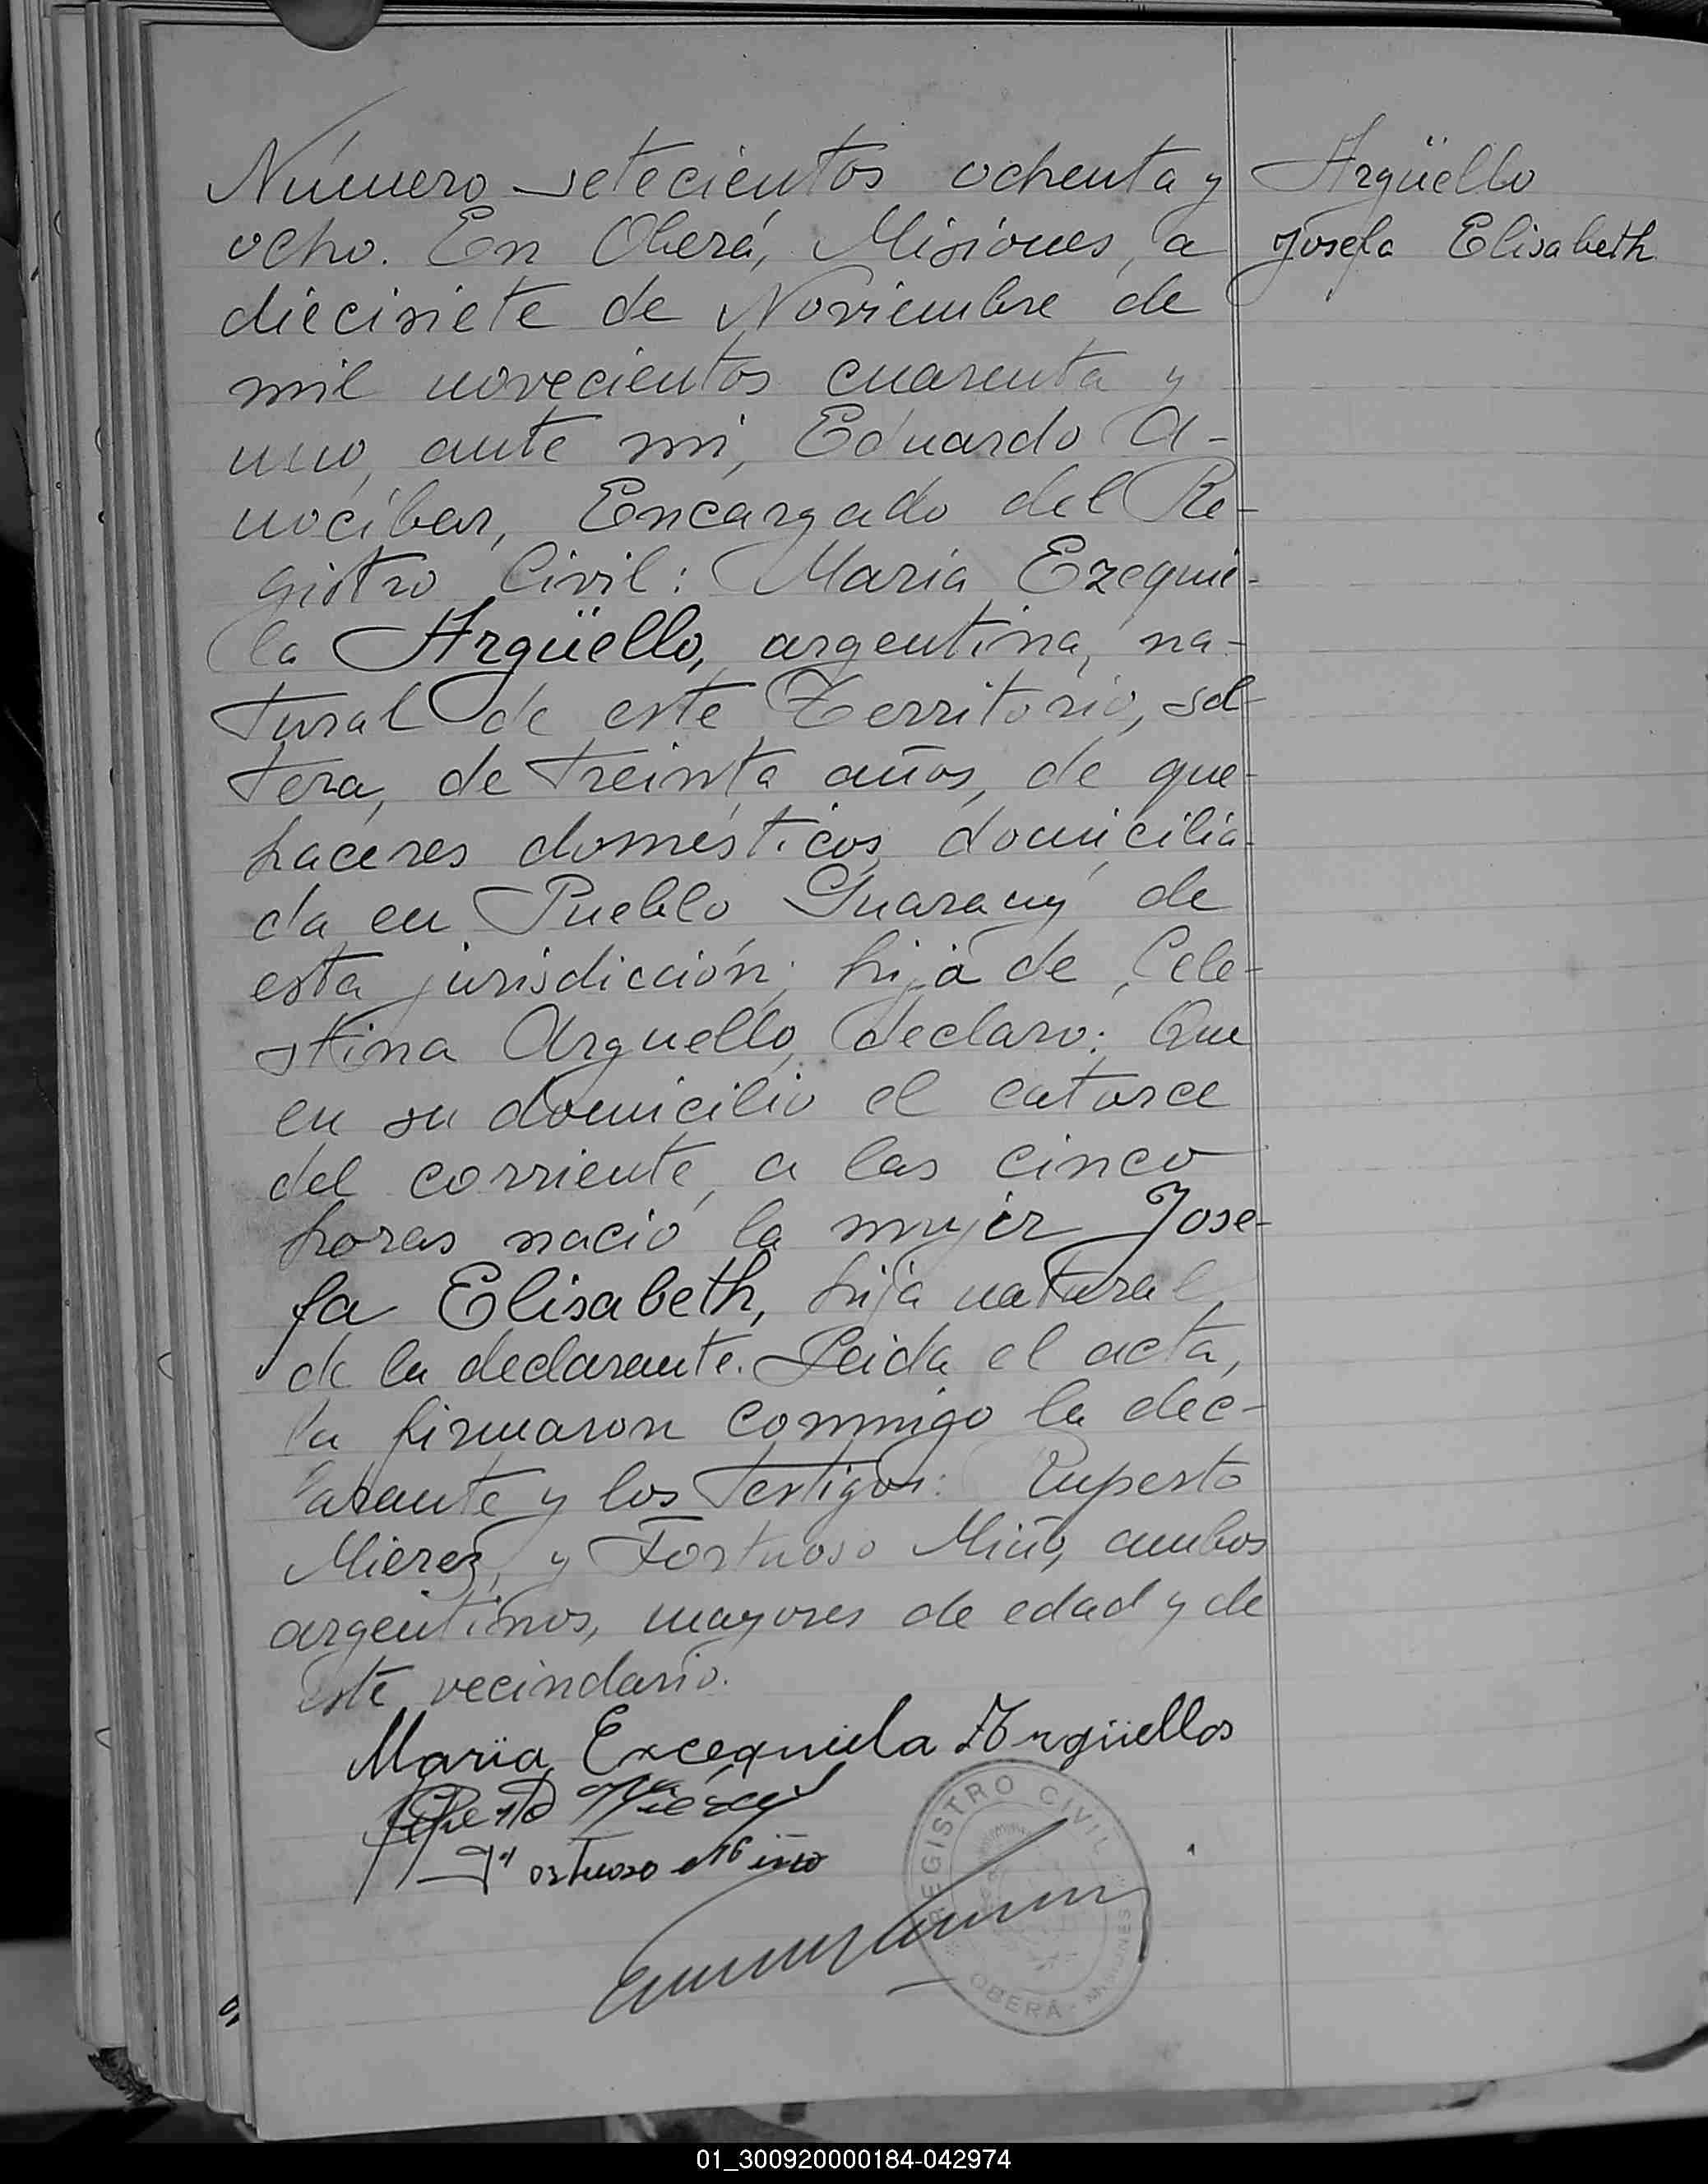 Número setecientos ochenta y
ocho. En Oberá, Misiones, a
diecisiete de Noviembre de
mil novecientos cuarenta y
uno, ante mi, Eduardo A-
nocíbar, Encargado del Re-
gistro Civil: María Ezequie-
la Argüello, argentina, na-
tural de este Territorio, sol-
tera, de treinta años, de que-
haceres domésticos, domicilia-
da en Pueblo Guarany de
esta jurisdicción; hija de Cele-
stina Arguello, declaro: Que
en su domicilio el catorce
del corriente, a las cinco
horas nació la mujer Jose-
fa Elisabeth, hija natural
de la declarante. Leida el acta,
la firmaron conmigo la dec-
larante y los testigos: Ruperto
Mierez, y Fortuoso Miño, ambos
argentinos, mayores de edad y de
este vecindario.
Argüello
Josefa Elisabeth
María Excequiela Argüellos
Fortuoso Miño
REGISTRO CIVIL
OBERÁ - MISIONES
01_300920000184-042974